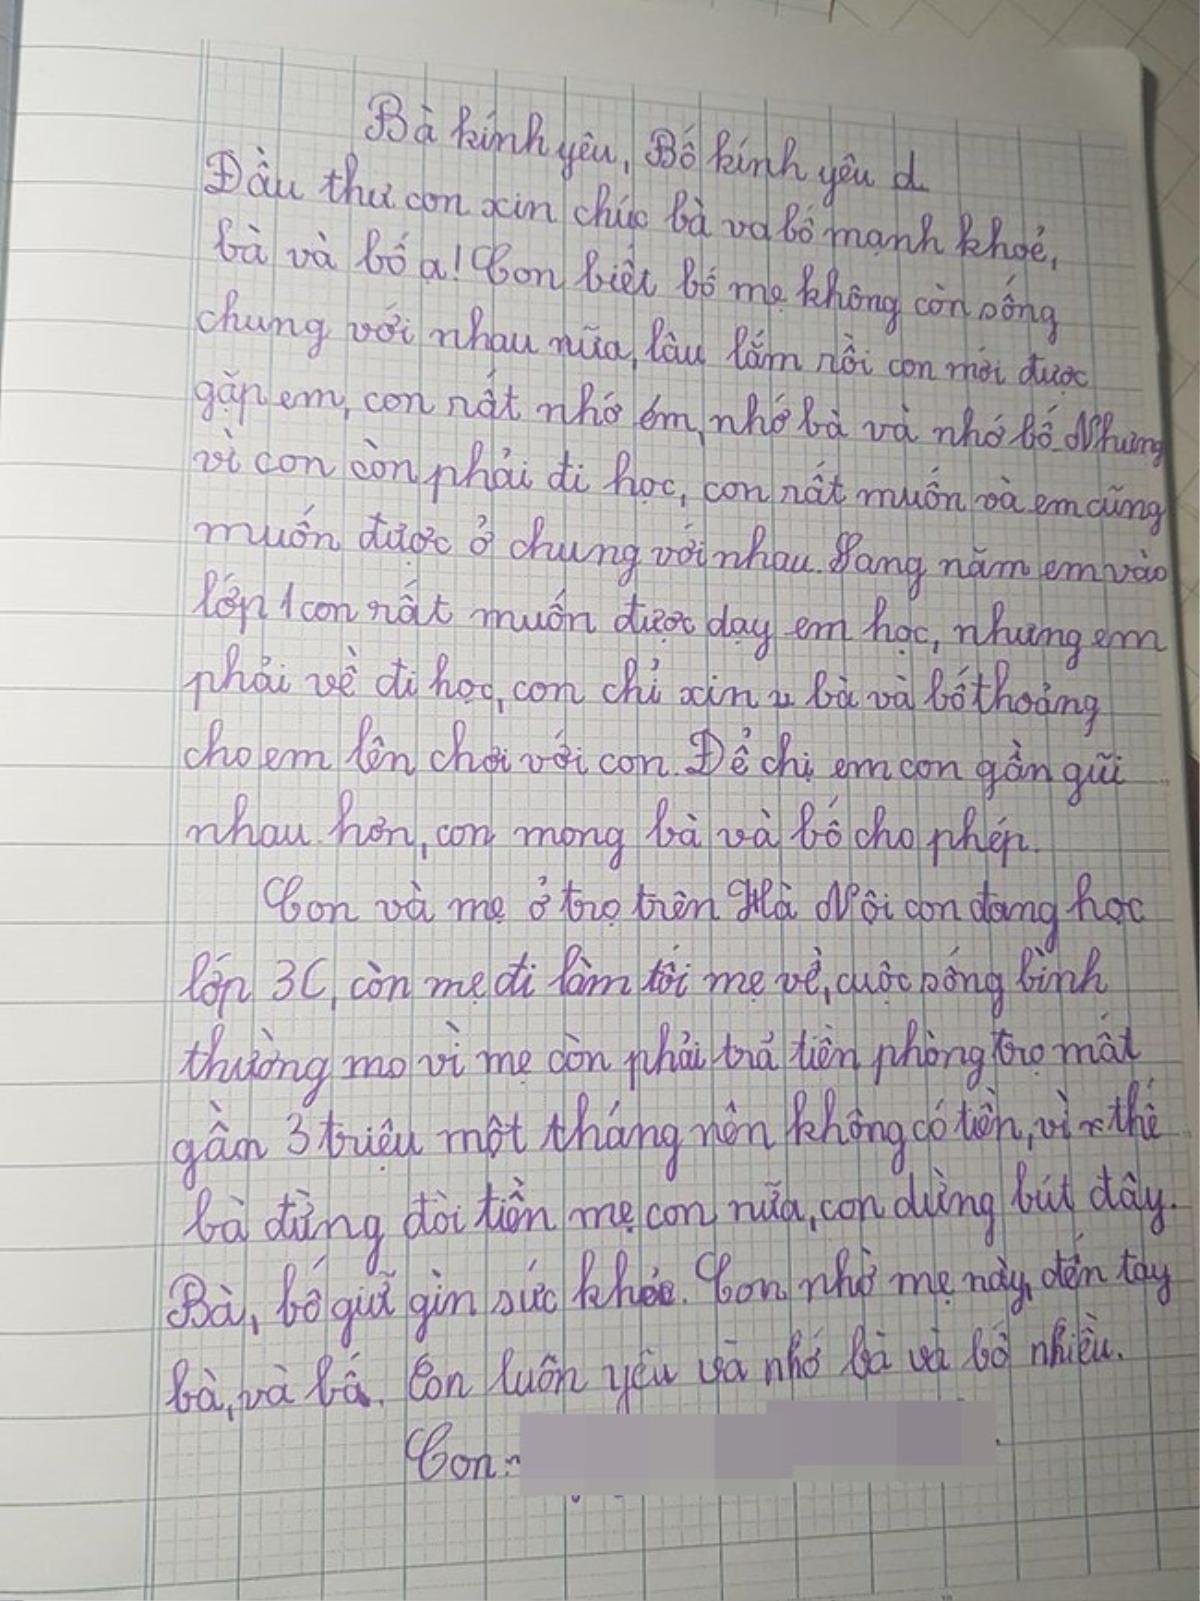 Bà kính yêu, Bố kính yêu d
Đầu thư con xin chúc bà và bố mạnh khoẻ,
bà và bố ạ! Con biết bố mẹ không còn sống
chung với nhau nữa, lâu lắm rồi con mới được
gặp em, con rất nhớ em, nhớ bà và nhớ bố. Nhưng
vì con còn phải đi học, con rất muốn và em cũng
muốn được ở chung với nhau. Sang năm em vào
lớp 1 con rất muốn được dạy em học, nhưng em
phải về đi học, con chỉ xin bà và bố thoảng
cho em lên chơi với con. Để chị em con gần gũi
nhau hơn, con mong bà và bố cho phép.
Con và mẹ ở trọ trên Hà Nội con đang học
lớp 3C, còn mẹ đi làm tối mẹ về, cuộc sống bình
thường mo vì mẹ còn phải trả tiền phòng trọ mất
gần 3 triệu một tháng nên không có tiền, vì thế
bà đừng đòi tiền mẹ con nữa, con dừng bút đây.
Bà, bố giữ gìn sức khỏe. Con nhờ mẹ này, đến tay
bà, và bố. Con luôn yêu và nhớ bà và bố nhiều.
Con: